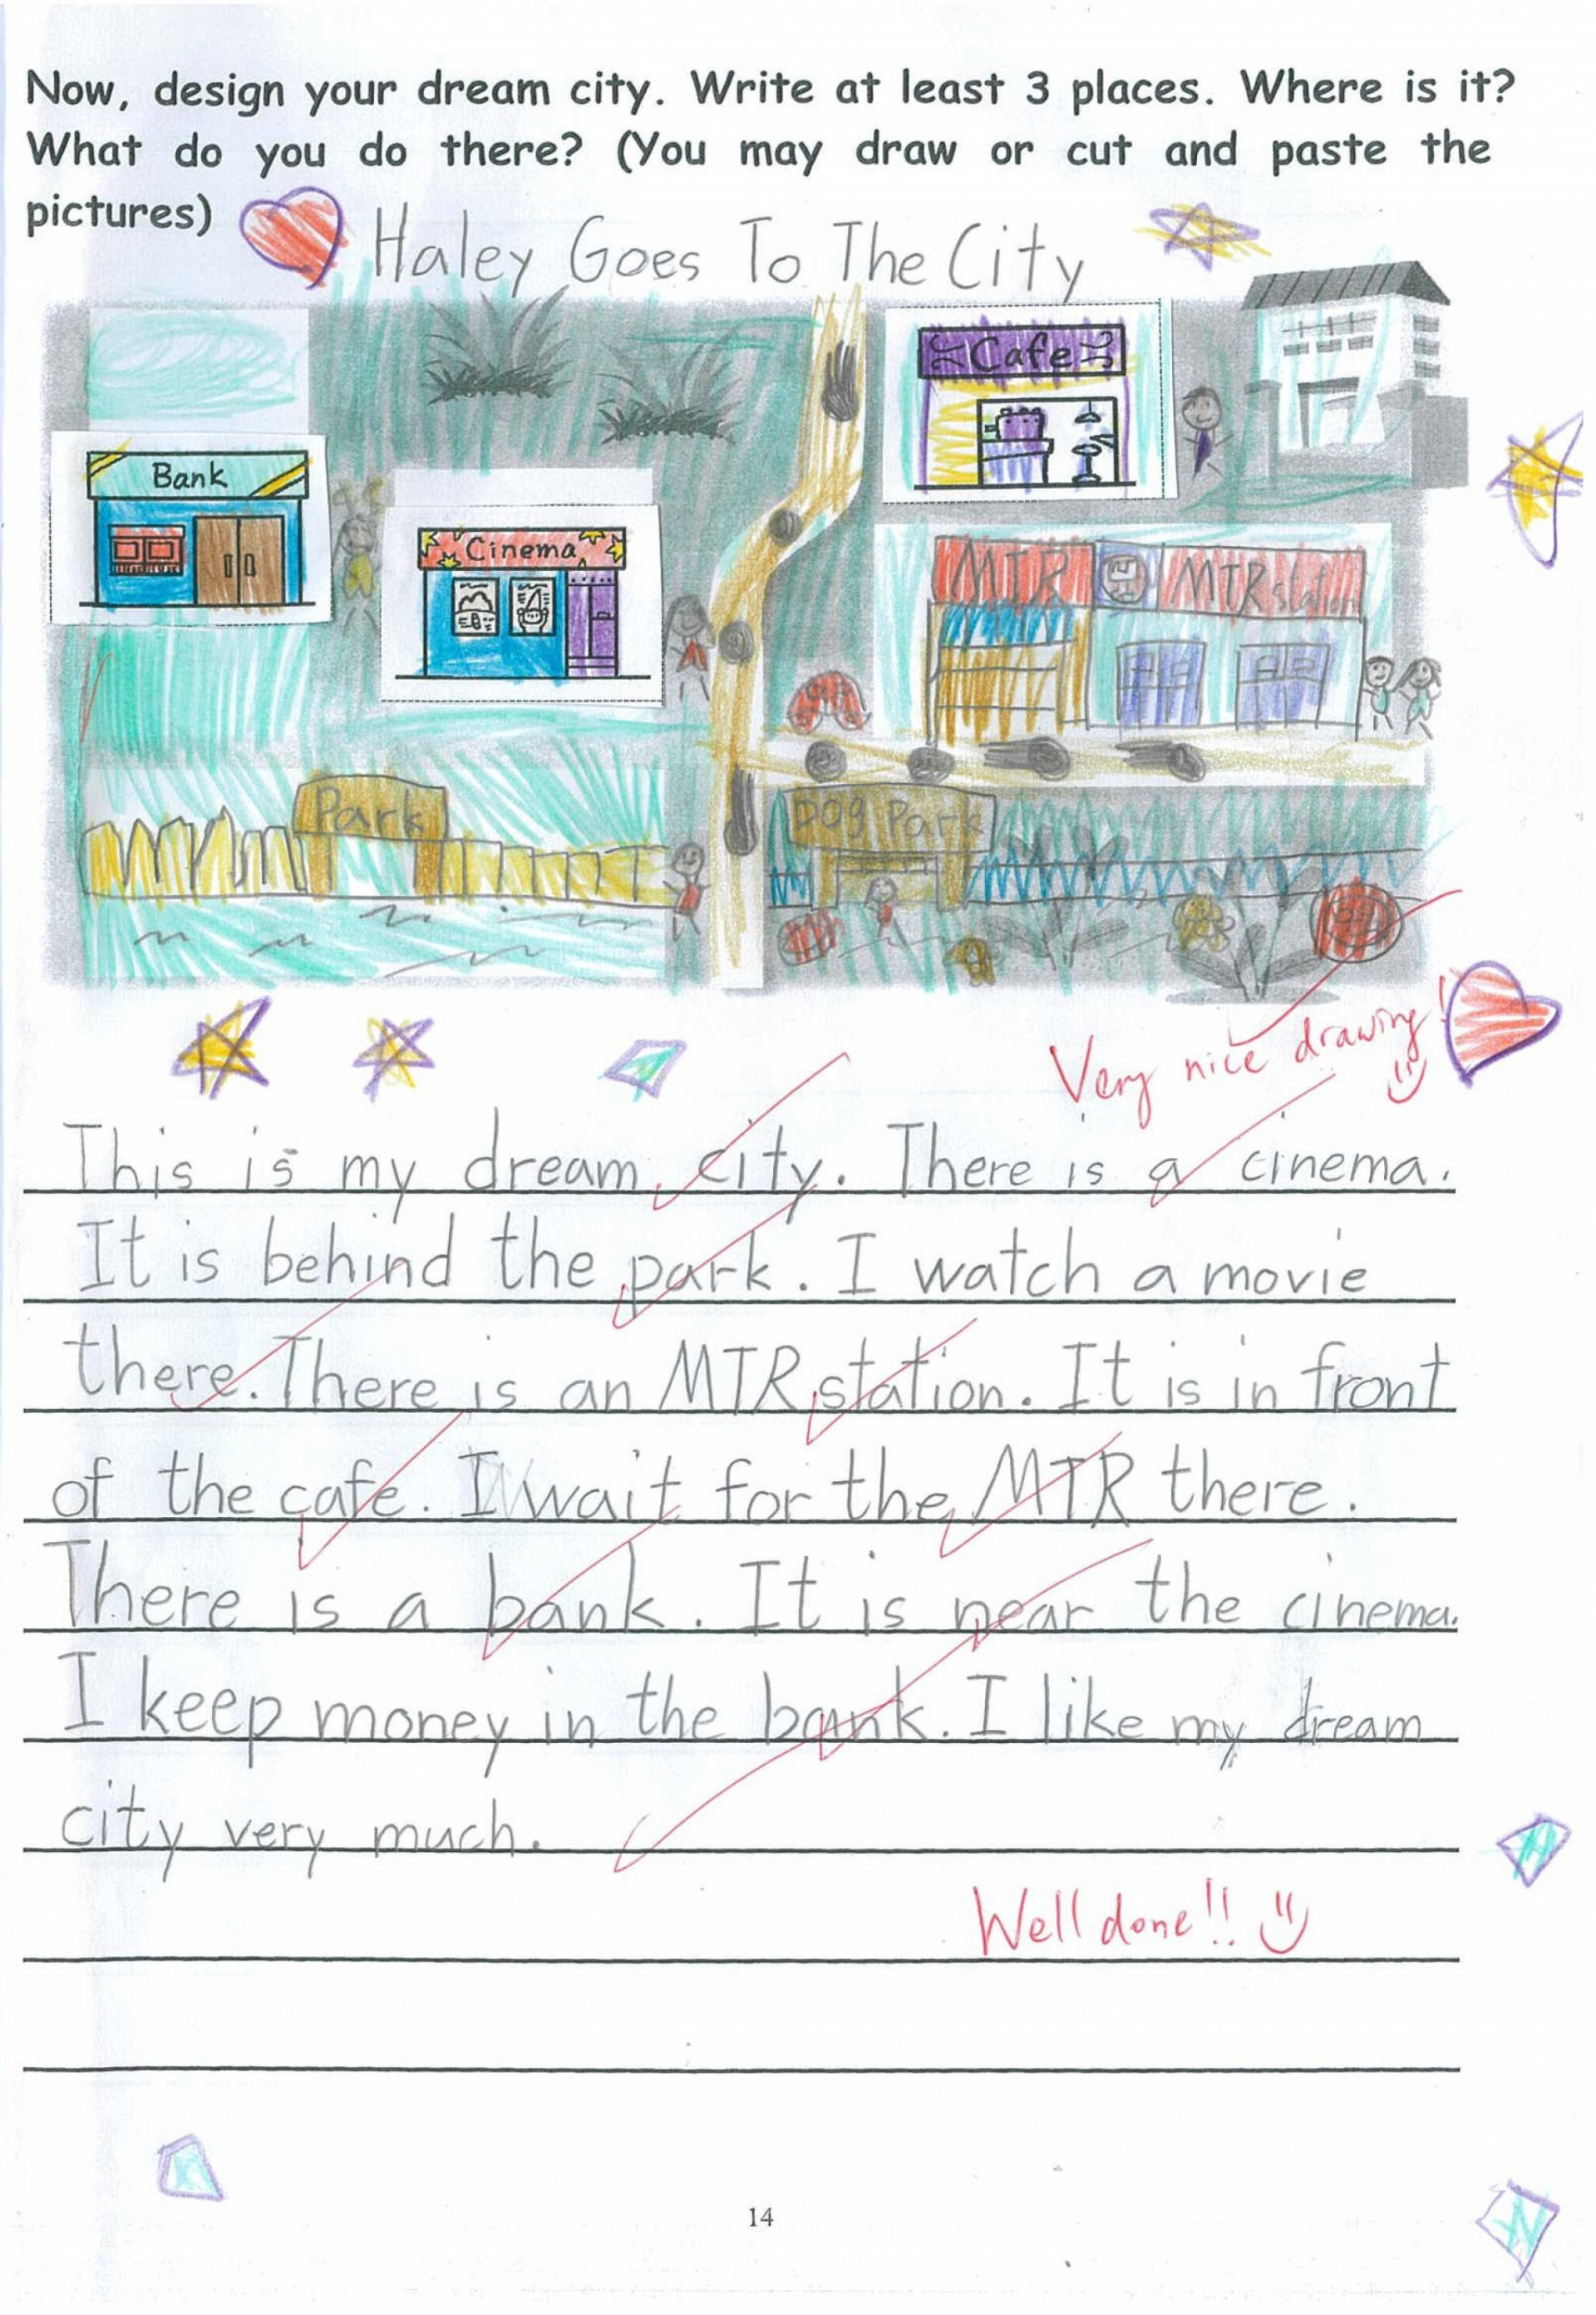 Now, design your dream city. Write at least 3 places. Where is it?
What do you do there? (You may draw or cut and paste the
pictures)
Haley Goes To The City
Cafe
Bank
Cinema
MTR MTR station
Park
Dog Park
Very nice drawing!
This is my dream city. There is a cinema.
It is behind the park. I watch a movie
there. There is an MTR station. It is in front
of the cafe. I wait for the MTR there.
There is a bank. It is near the cinema.
I keep money in the bank. I like my dream
city very much.
Well done!!
14